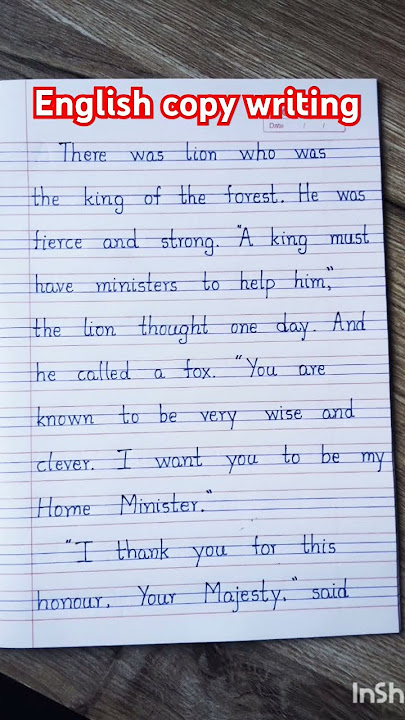 English copy writing
Date / /
There was lion who was
the king of the forest. He was
fierce and strong. "A king must
have ministers to help him,"
the lion thought one day. And
he called a fox. "You are
known to be very wise and
clever. I want you to be my
Home Minister."
"I thank you for this
honour, Your Majesty," said
InSh